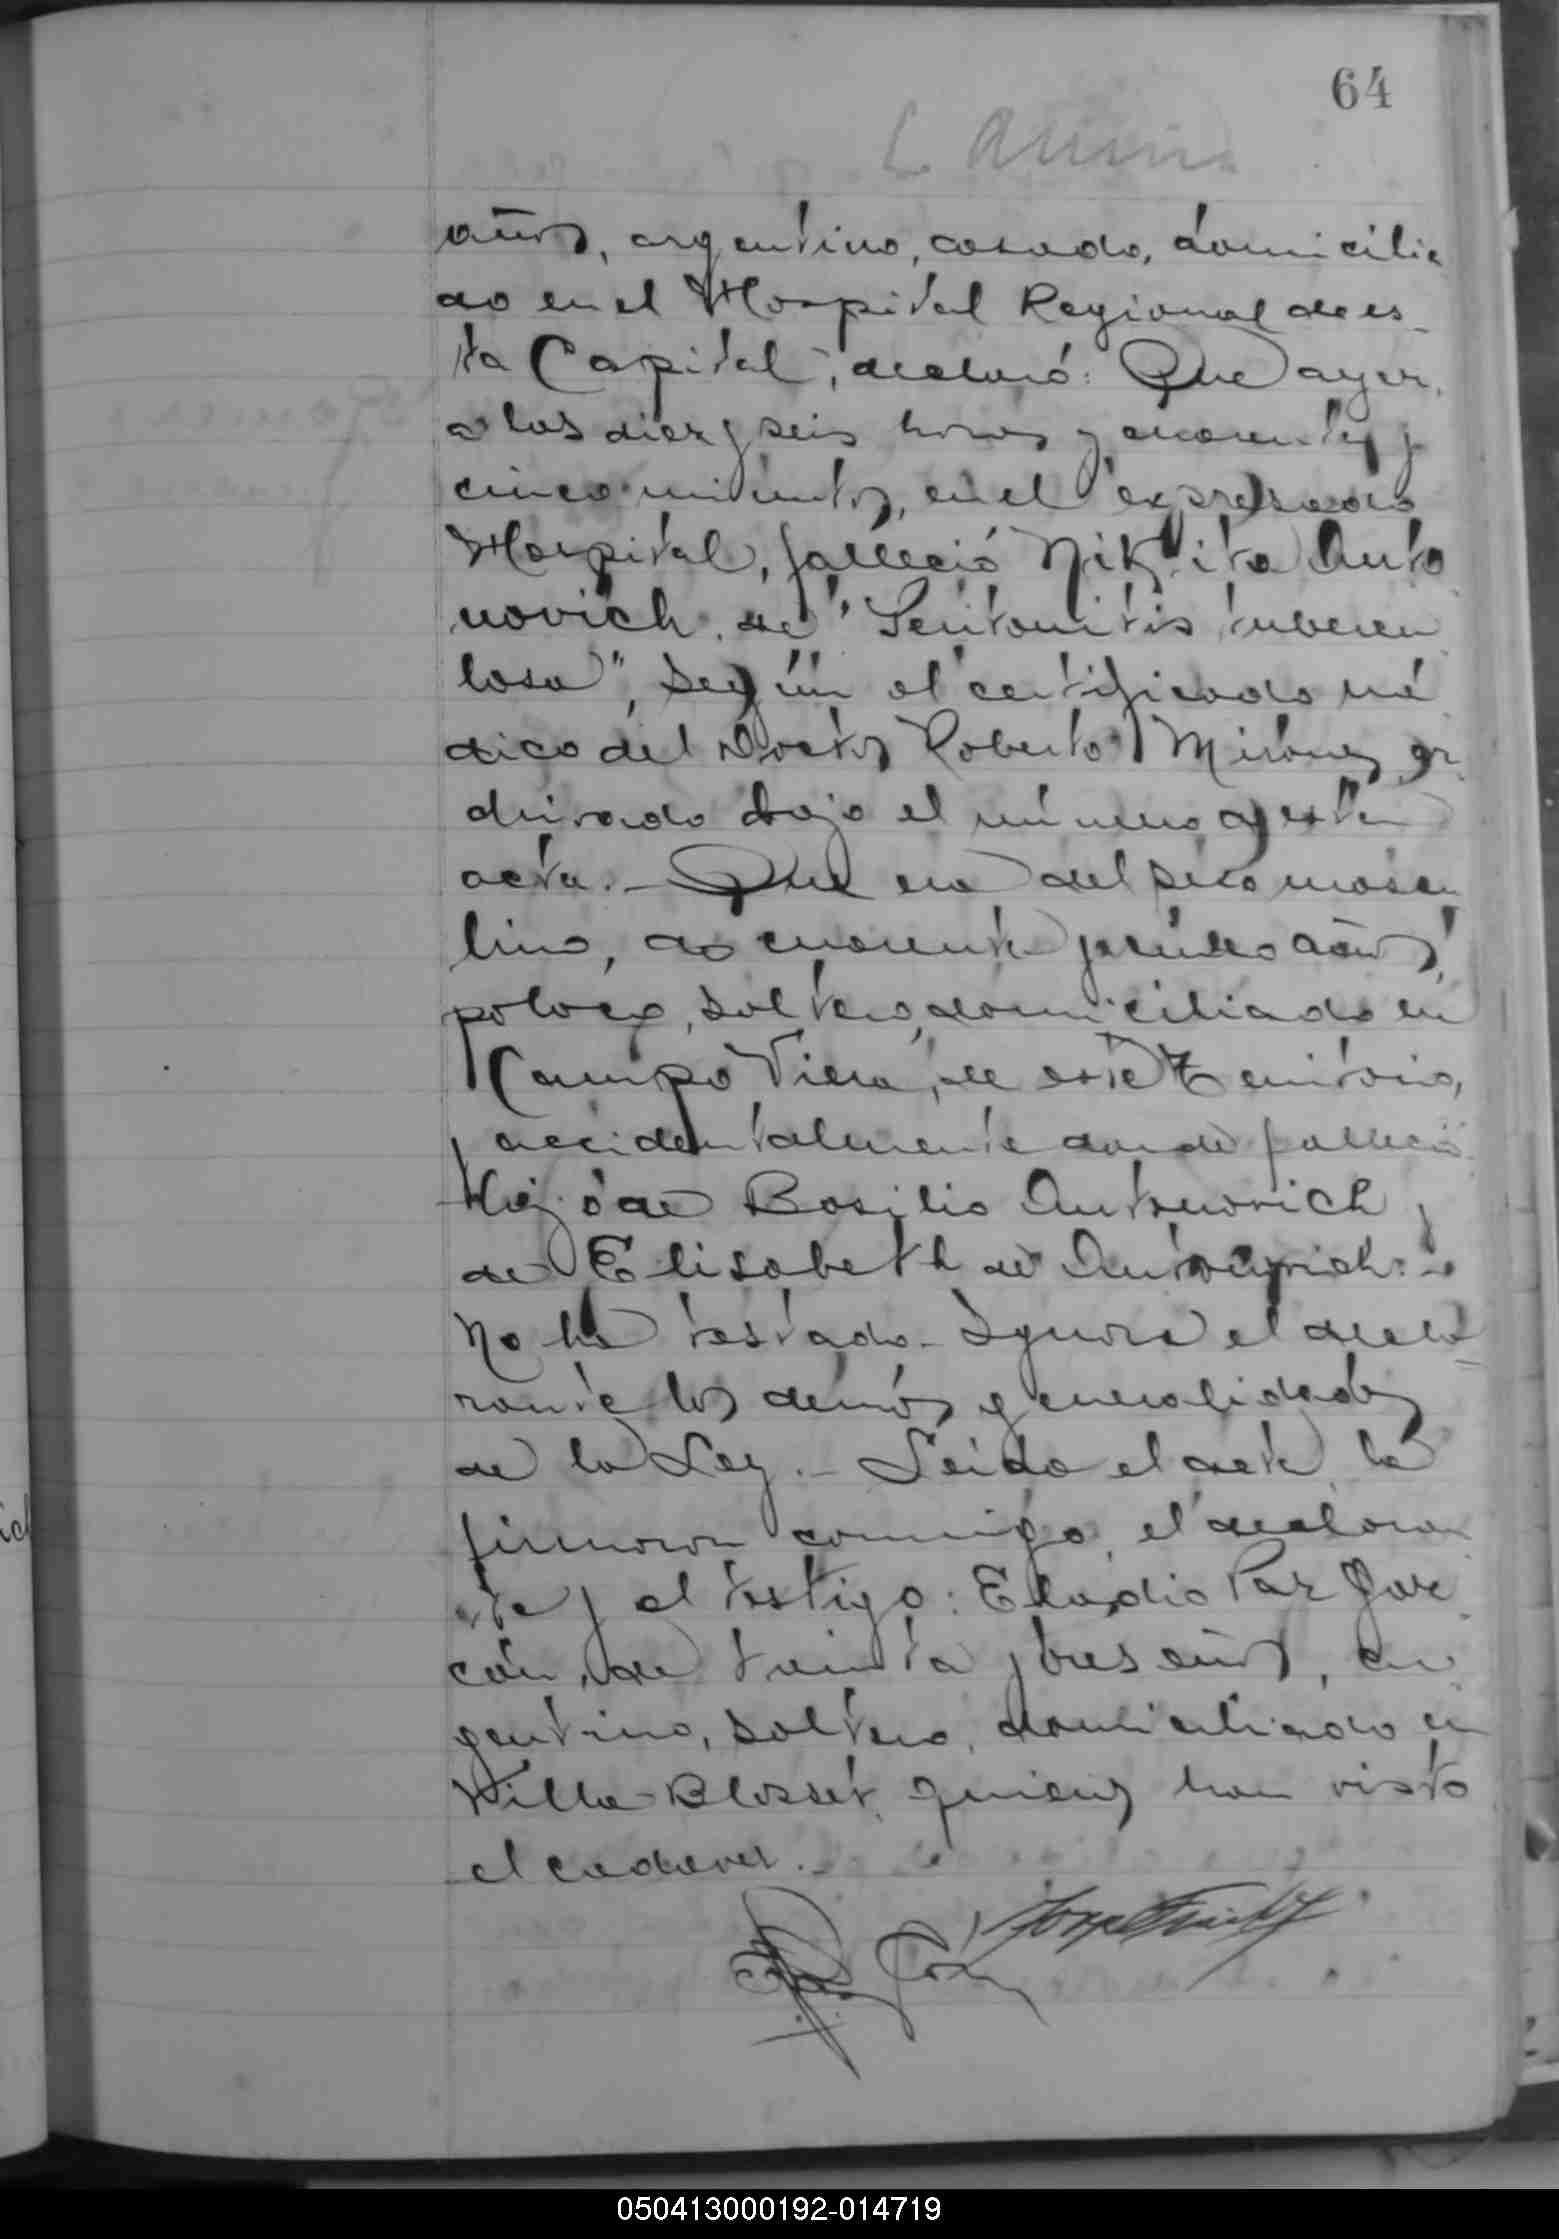 64
años, argentino, casado, domicilia
do en el Hospital Regional de es_
ta Capital, declaró: Que ayer,
a las diez y seis horas y cuarenta y
cinco minutos, en el expresado
Hospital, falleció Nikita Anto
novich, de "Peritonitis tubercu
losa", según el certificado mé
dico del Doctor Roberto Mirones, ar
chivado bajo el número de esta
acta.- Que era del sexo mascu
lino, de cuarenta y cinco años,
polaco, soltero, domiciliado en
Campo Viera, de este Territorio,
y accidentalmente donde falleció.
Hijo de Basilio Antonovich y
de Elisabeth de Antonovich.-
No ha testado.- Ignora el decla
rante las demás generalidades
de la Ley.- Leída el acta, la
firmaron conmigo, el declaran
te y el testigo: Eladio Paz Gar
cón, de treinta y tres años, ar
gentino, soltero, domiciliado en
Villa Blosset, quienes han visto
el cadaver.-
050413000192-014719